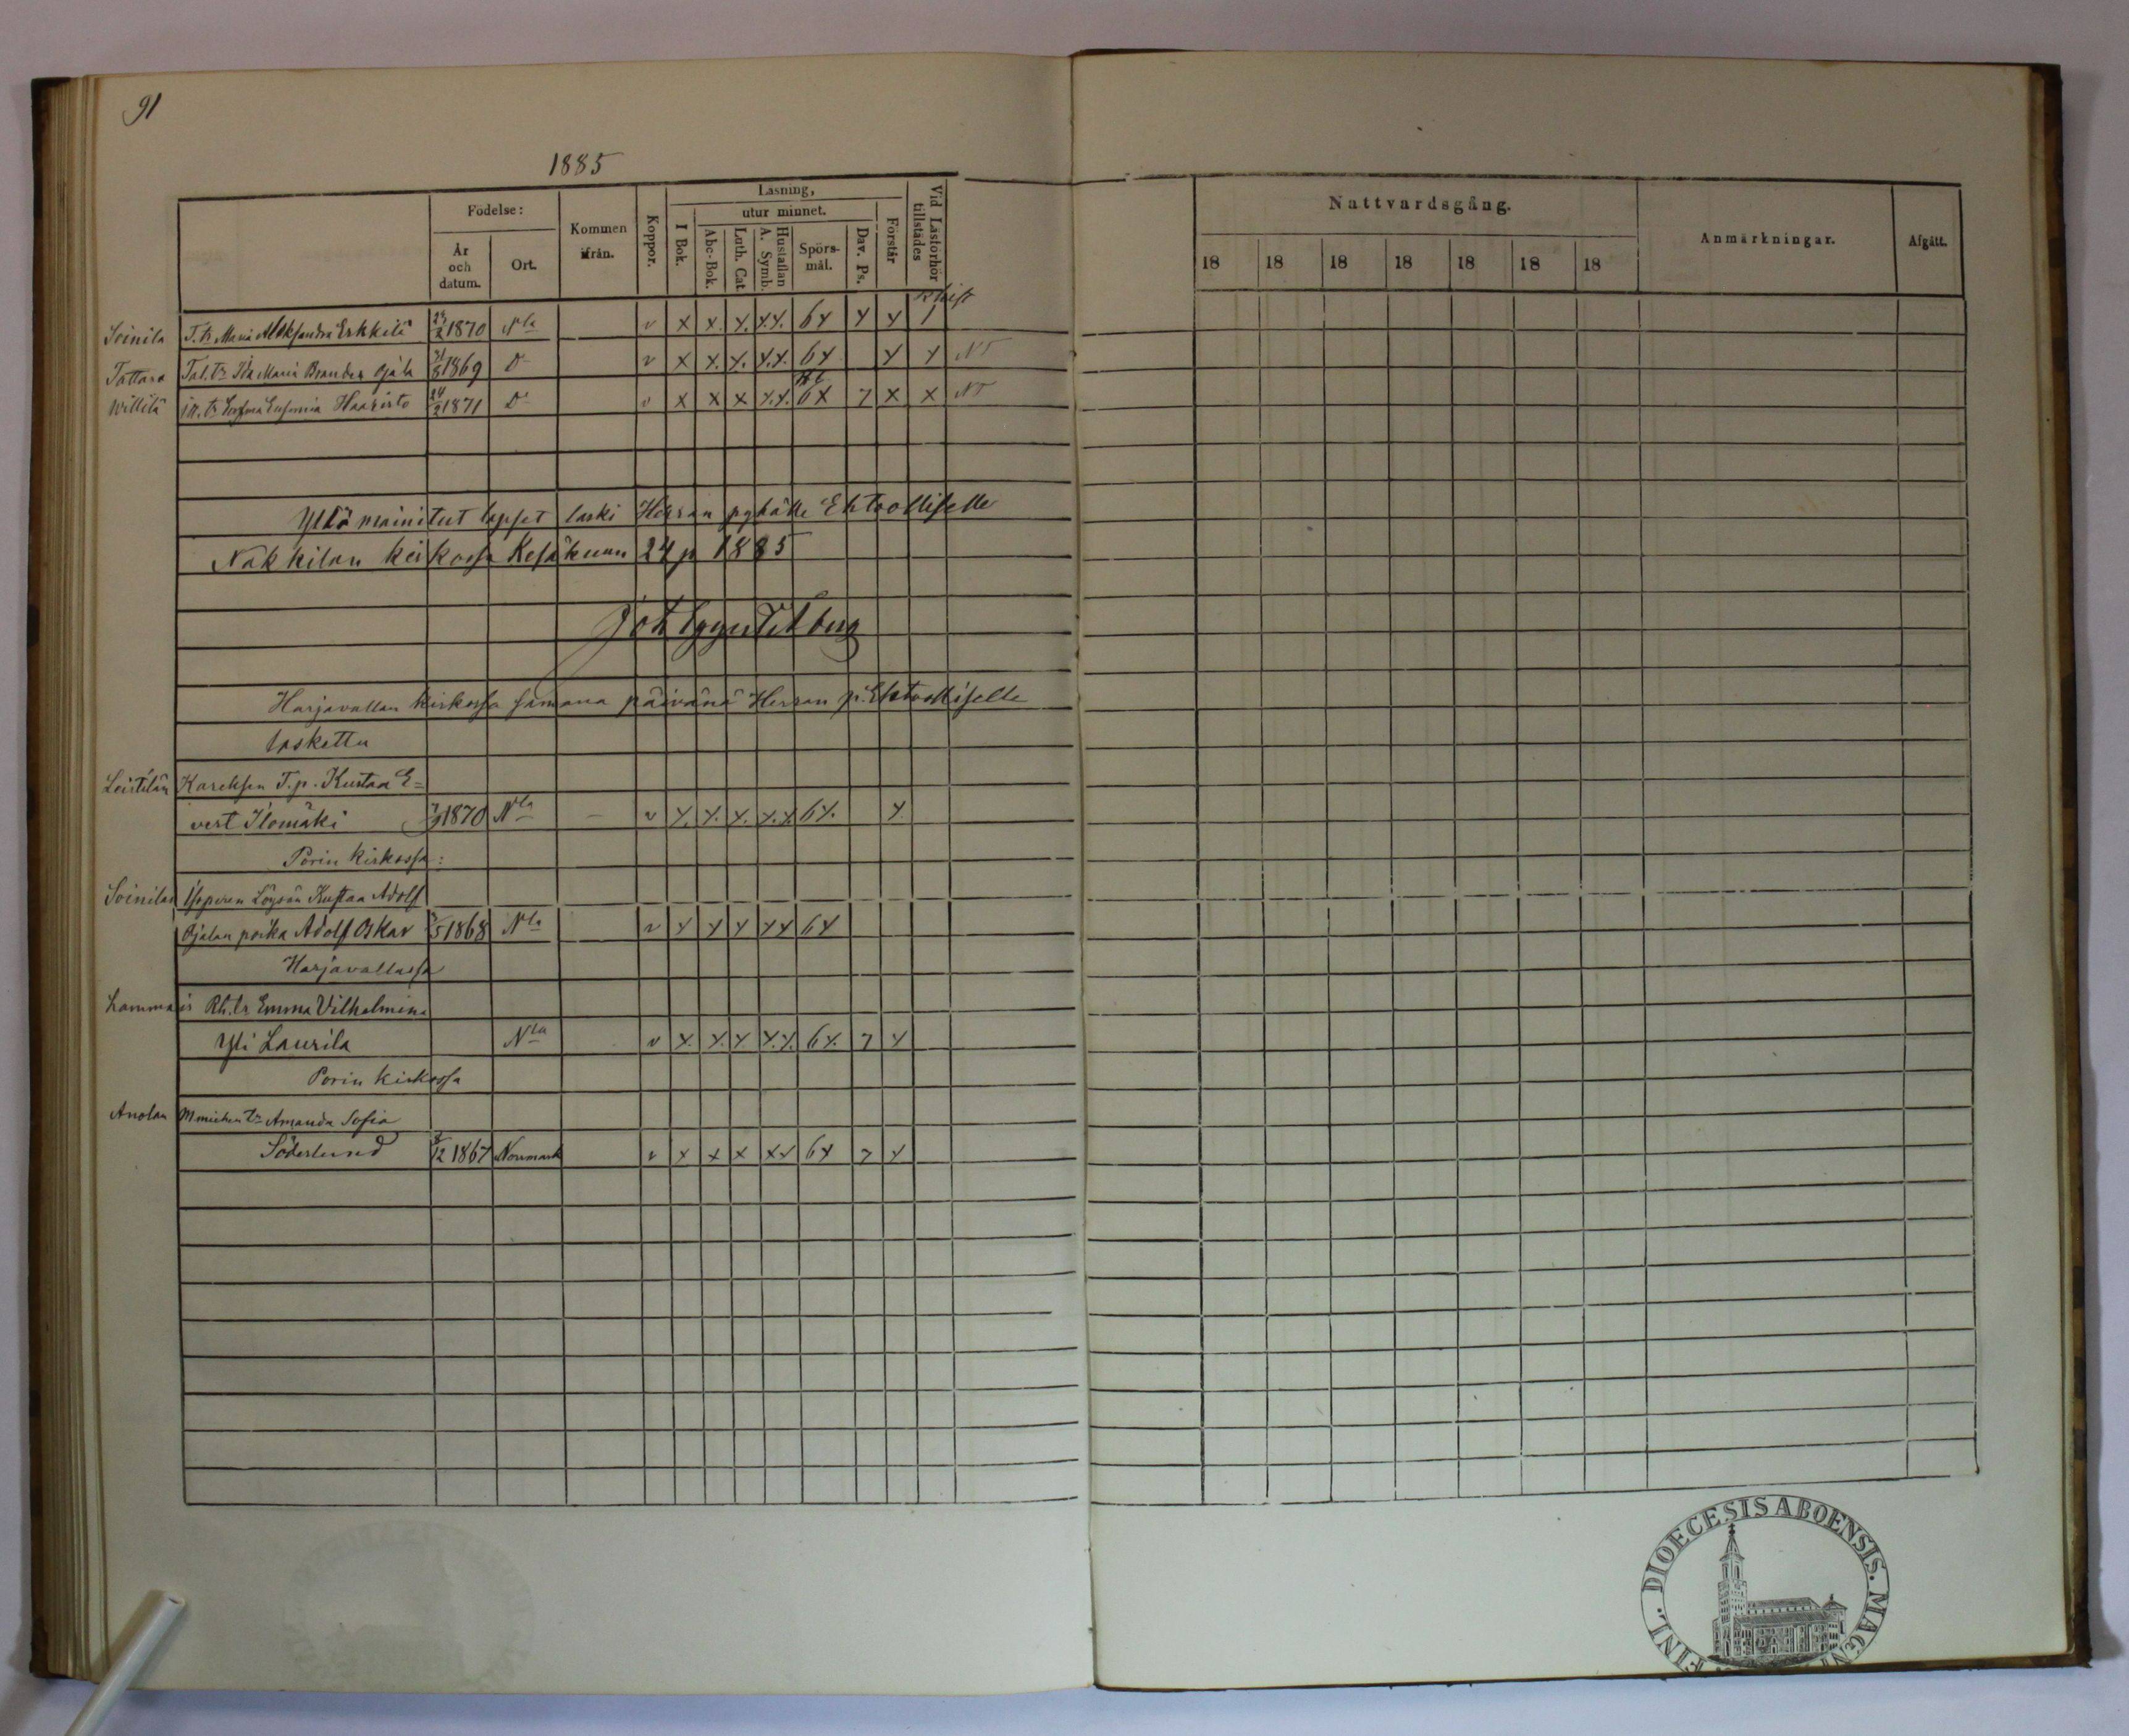 91
1885
Födelse:
År och datum.
Ort.
Kommen ifrån.
Koppor.
Läsning,
I Bok.
utur minnet.
Abc-Bok.
Luth. Cat.
Hustaflan A. Symb.
Spörsmål.
Dav. Ps.
Förstår
Vid Läsförhör tillstädes
Nattvardsgång.
18 18 18 18 18 18 18
Anmärkningar.
Afgått.
Soinila T. tr Maria Aleksandra Erkkilä 1870 Nla v x x. x. x.x. 6x x x 1
Tattara Tal. tr Ida Maria Brander Ojala 1869 Do v x x. x. x.x. 6x x x NT
Willilä tr Eufemia Haaristo 24/2 1871 Do v x x x x.x. 6x 7 x x NT
Yllä mainitut lapset laski Herran pyhälle Ehtoolliselle
Nakkilan kirkossa Kesäkuun 24 p 1885
Harjavallan kirkossa samana päivänä Herran p. Ehtoolliselle
laskettu
Leistilän Kareksen T. p. Kustaa E=
vert Ilomäki 1870 Nla – v x. x. x. x.x 6x. x.
Porin kirkossa:
Soinilan Löysän Kustaa Adolf
Ojalan poika Adolf Oskar 1868 Nla v x x x xx 6x
Harjavallassa
Lammais Rh. tr Emma Vilhelmina
Yli Laurila Nla v x. x. x x.x. 6x. 7 x
Porin kirkossa
Anolan Mmiehen tr Amanda Sofia
Söderlund 12 1867 Norrmark v x x x xx 6x 7 x
DIOECESIS ABOENSIS. MAGNI FINL.